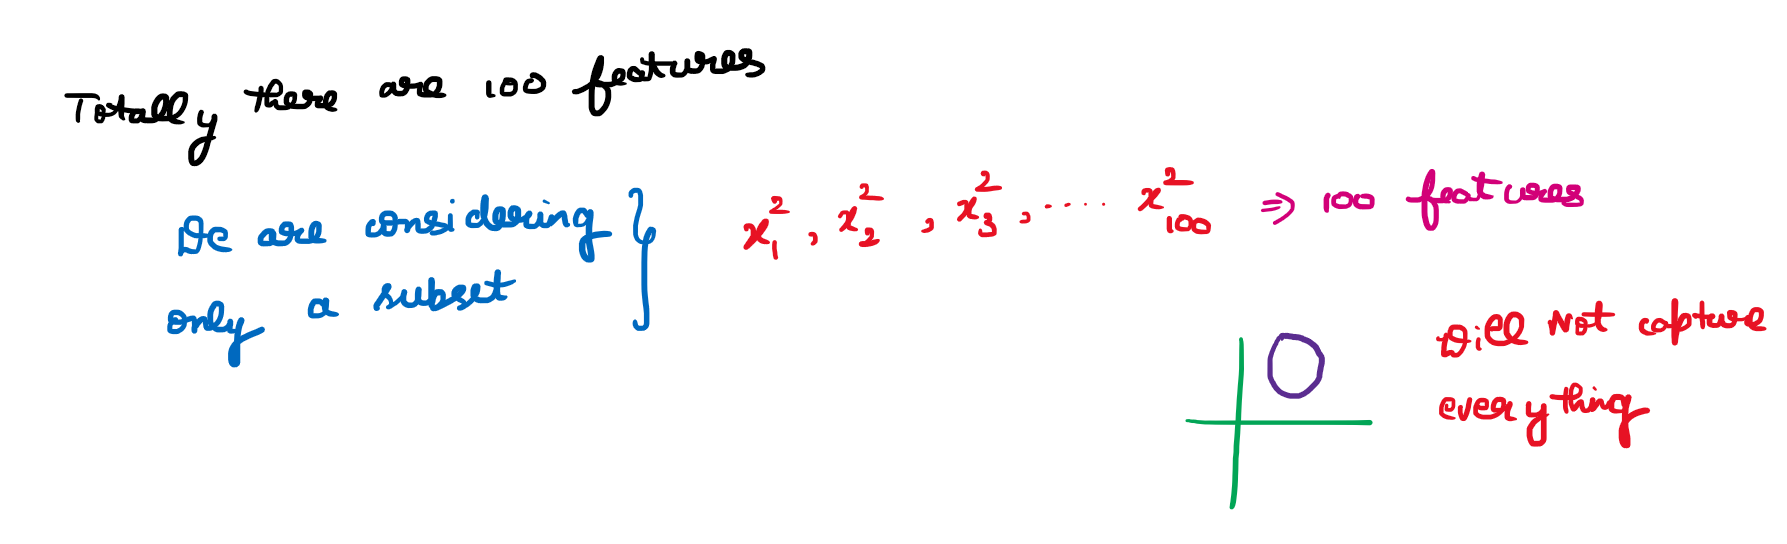 Totally there are 100 features
We are considering
only a subset
x₁², x₂², x₃², ..... x₁₀₀² ⇒ 100 features
Will Not capture
everything